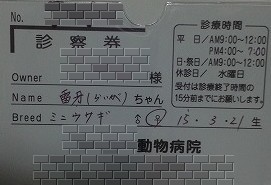 No.
診察券
Owner 様
Name 雷牙(らいが)ちゃん
Breed ミニウサギ ♂♀ 15・3・21生
動物病院
診療時間
平日/AM9:00~12:00
PM4:00~7:00
日・祭/AM9:00~12:00
休診日/水曜日
受付は診療終了時間の
15分前までにお願いします。